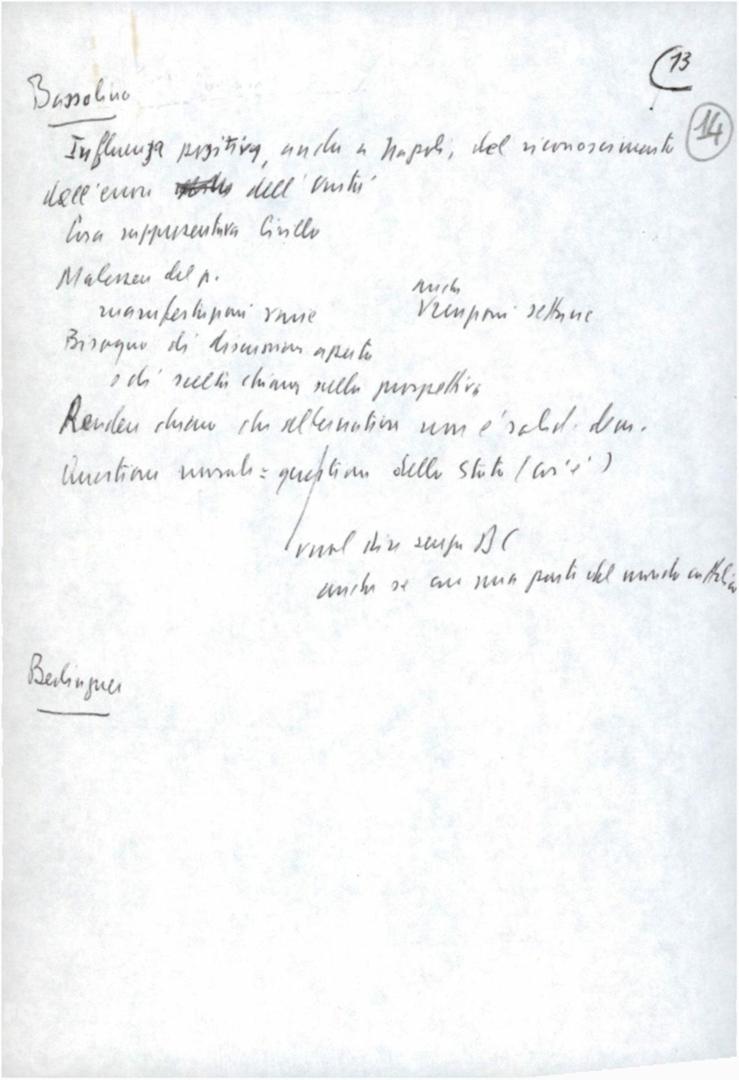 13
14
Bassolino
Influenza positiva, anche a Napoli, del riconoscimento
dell'errore dell'Unità
Cosa rappresentava Cirillo
Malessere del p.
manifestazioni varie anche reazioni settarie
Bisogno di discussione aperta
e di scelta chiara sulla prospettiva
Rendere chiaro che alternativa non è solid. dem.
Questione morale = questione dello Stato (cos'è)
vuol dire senza DC
anche se con una parte del mondo cattolico
Berlinguer